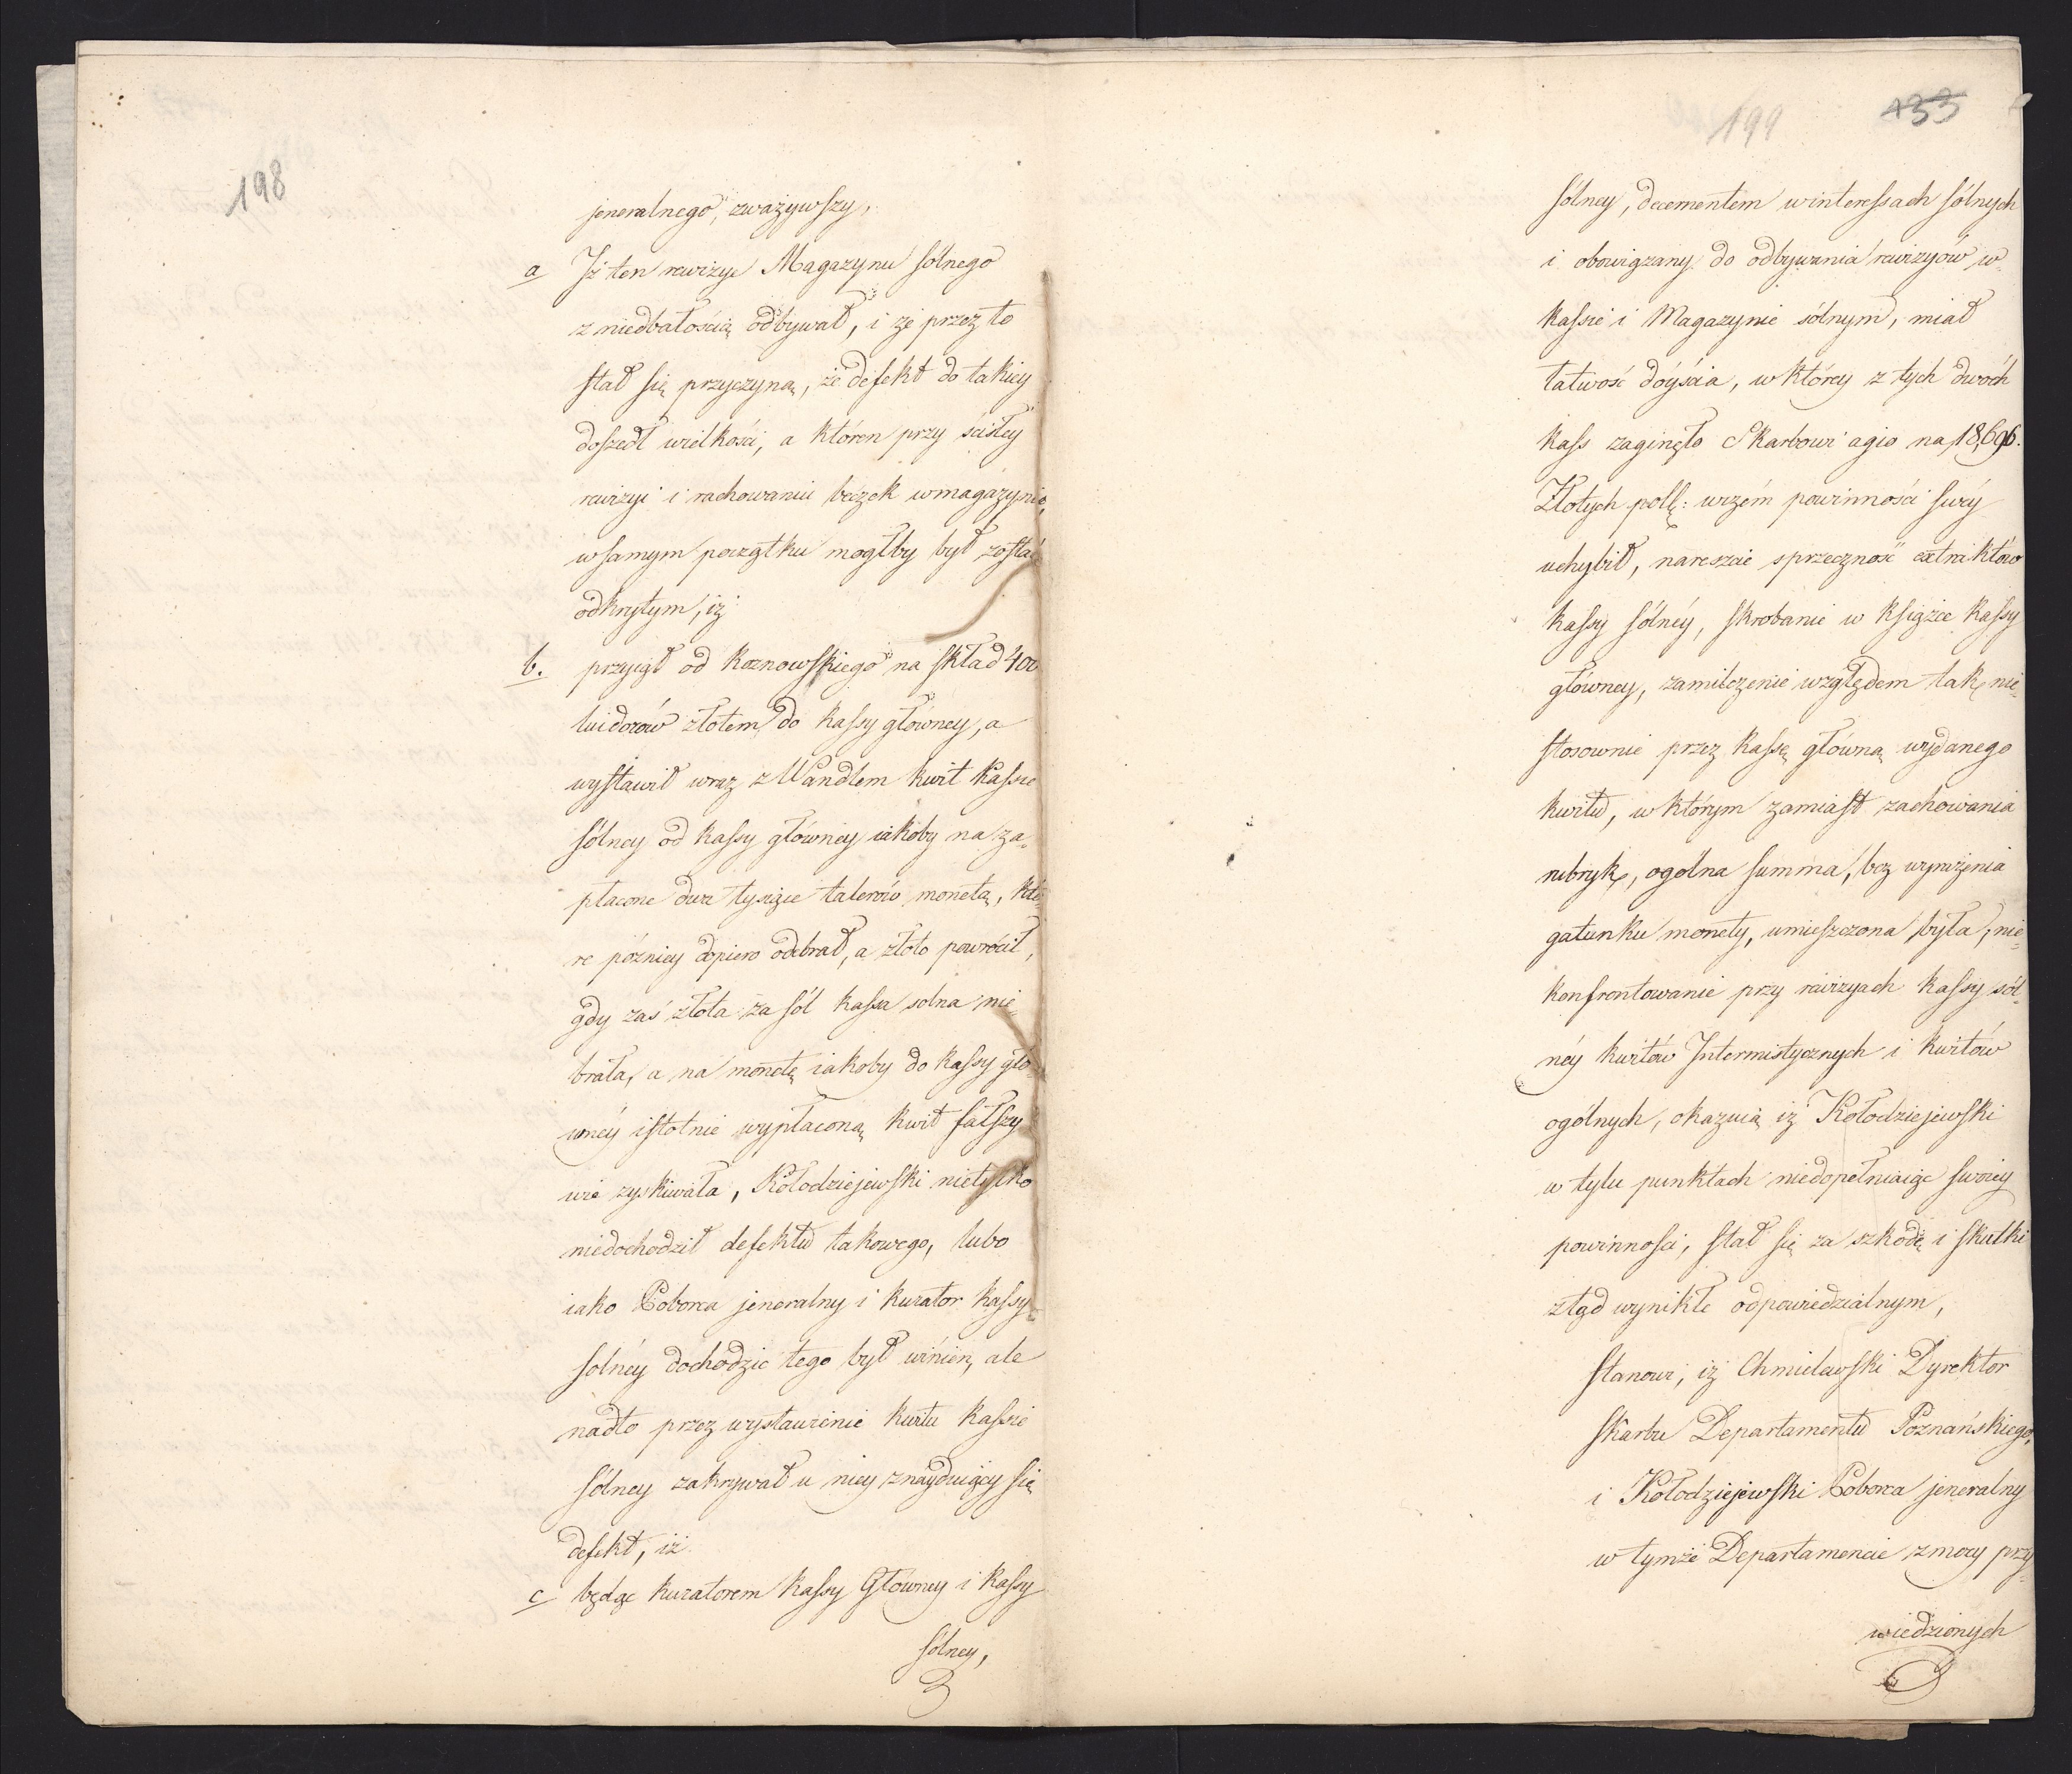 198
jeneralnego, zważywszy,
a Iż ten rewizye Magazynu sólnego
z niedbałością odbywał, i że przez to
stał się przyczyną, że defekt do takiey
doszedł wielkości, a któren przy ścisłey
rewizyi i rachowaniu beczek w magazynie,
w samym początku mogłby był zostać
odkrytym, iż
b. przyiął od Koznowskiego na skład 400
luidorów złotem do kassy główney, a
wystawił wraz z Wandlem kwit kassie
sólney od kassy główney iakoby na za-
płacone dwa tysiące talerów monetą, któ-
re późniey dopiero odebrał, a złoto powrócił,
gdy zaś złota za sól kassa solna nie-
brała, a na monetę iakoby do kassy głó-
wnéy istotnie wypłaconą kwit fałszy
wie zyskiwała, Kołodziejewski nietylko
niedochodził defektu takowego, lubo
iako Poborca jeneralny i kurator kassy
solnéy dochodzić tego był winien, ale
nadto przez wystawienie kwitu kassie
sólney zakrywał u niey znayduiący się
defekt, iż
c będąc kuratorem kassy Główney i kassy
sólney,
199
133
sólney, decernentem w interessach sólnych
i obowiązany do odbywania rewizyów w
kassie i Magazynie sólnym, miał
łatwość dóyścia, w którey z tych dwóch
kass zaginęło Skarbowi agio na 18,696.
Złotych poll: w czém powinności swéy
uchybił, nareszcie sprzeczność extraktów
kassy sólnéy, skrobanie w książce kassy
główney, zamilczenie względem tak nie-
stosownie przez kassę główną wydanego
kwitu, w którym zamiast zachowania
rubryk, ogólna summa, bez wyrażenia
gatunku monety, umieszczona była, nie-
konfrontowanie przy rewizyach kassy sól-
néy kwitów Intermistycznych i kwitów
ogólnych, okazuią iż Kołodziejewski
w tylu punktach niedopełniaiąc swoiey
powinności, stał się za szkodę i skutki
ztąd wynikłe odpowiedzialnym,
stanowi, iż Chmielewski Dyrektor
skarbu Departamentu Poznańskiego,
i Kołodziejewski Poborca jeneralny
w tymże Departamencie z mocy przy-
wiedzionych